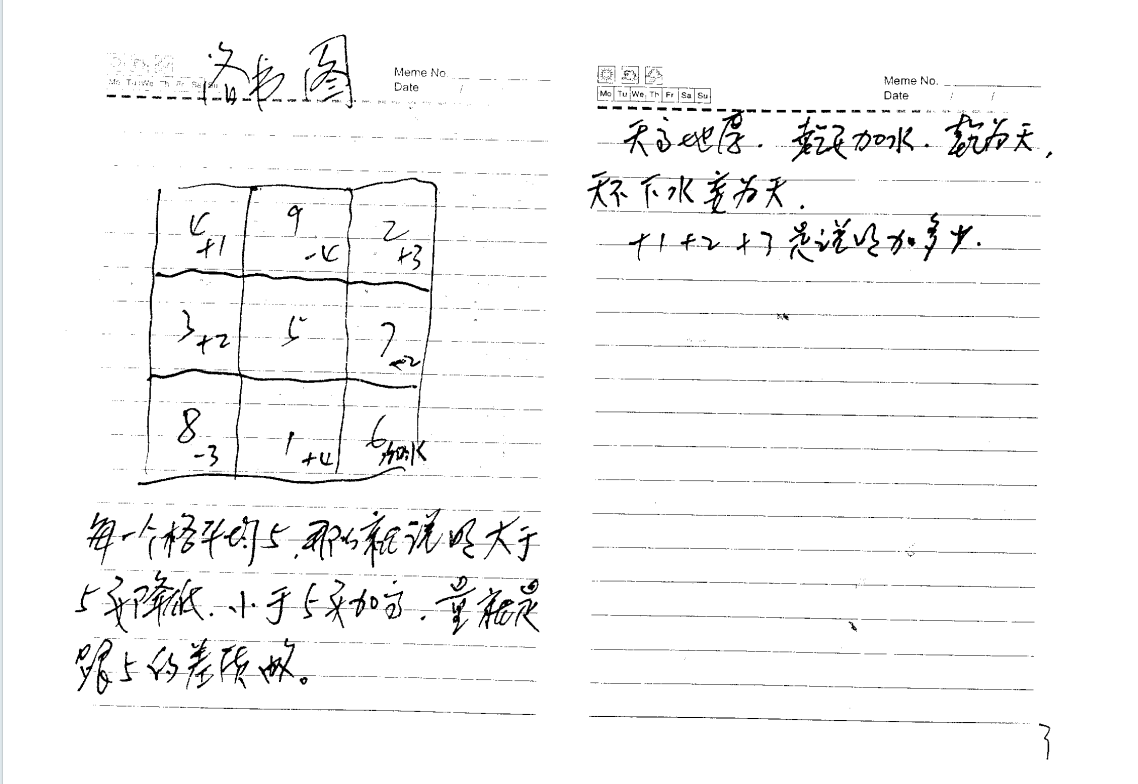 洛书图
Meme No.
Date /
Mo Tu We Th Fr Sa Su
4 +1 9 -4 2 +3
3 +2 5 7 -2
8 -3 1 +4 6 加水
每一个格平均5,那么就说明大于
5要降低.小于5要加高.量就是
跟5的差质做。
Meme No.
Date / /
Mo Tu We Th Fr Sa Su
天高地厚.乾是加水.乾为天,
天不下水变为天.
+1 +2 +3 是说明加多少.
3